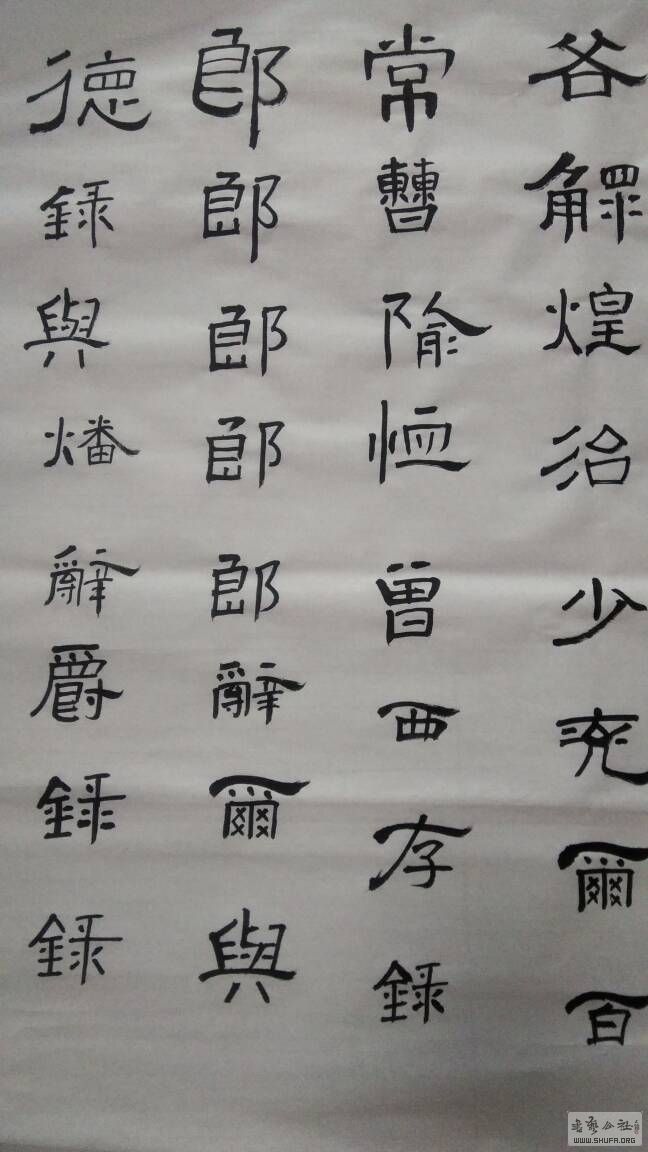 各煌治少爾百
常曹隃恤曾西存錄
郎郎郎郎郎辭爾與
德錄與燔辭爵錄錄
书艺公社
WWW.SHUFA.ORG